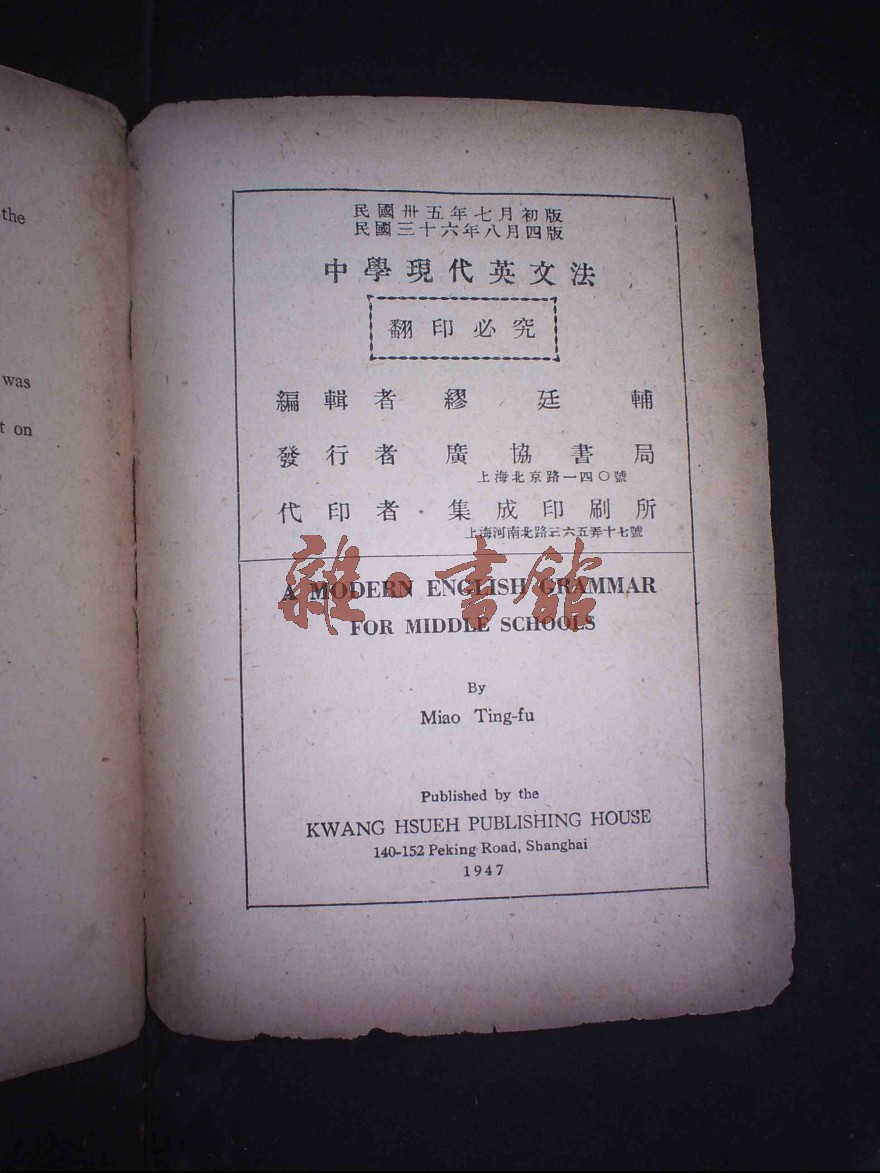 the
was
t on
民國卅五年七月初版
民國三十六年八月四版
中學現代英文法
翻印必究
編輯者 繆廷輔
發行者 廣協書局
上海北京路一四〇號
代印者 集成印刷所
上海河南北路三六五弄十七號
A MODERN ENGLISH GRAMMAR
FOR MIDDLE SCHOOLS
雜·書館
By
Miao Ting-fu
Published by the
KWANG HSUEH PUBLISHING HOUSE
140-152 Peking Road, Shanghai
1947